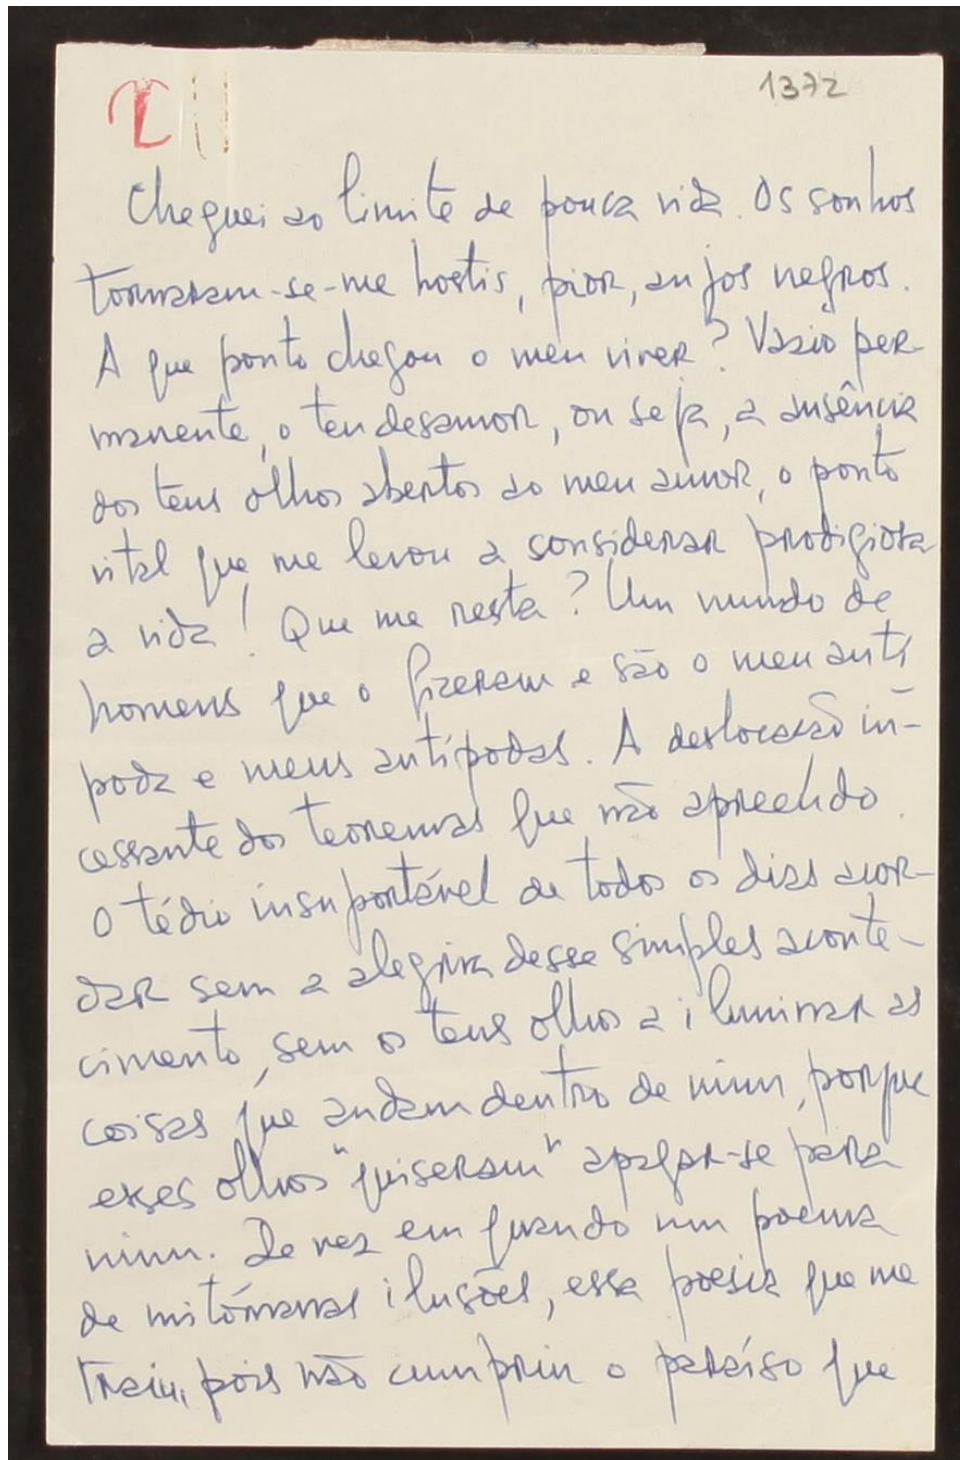 1372
Cheguei ao limite de pouca vida. Os sonhos
tornaram-se-me hostis, pior, anjos negros.
A que ponto chegou o meu viver? Vazio per-
manente, o teu desamor, ou seja, a ausência
dos teus olhos abertos ao meu amor, o ponto
vital que me levou a considerar prodigiosa
a vida! Que me resta? Um mundo de
homens que o fizeram e são o meu antí
poda e meus antípodas. A deslocação in-
cessante dos teoremas que não apreendo.
O tédio insuportável de todos os dias acor-
dar sem a alegria desse simples aconte-
cimento, sem os teus olhos a iluminar as
coisas que andam dentro de mim, porque
esses olhos "quiseram" apagar-se para
mim. De vez em quando um poema
de mitómanas ilusões, essa poesia que me
traiu, pois não cumpriu o paraíso que